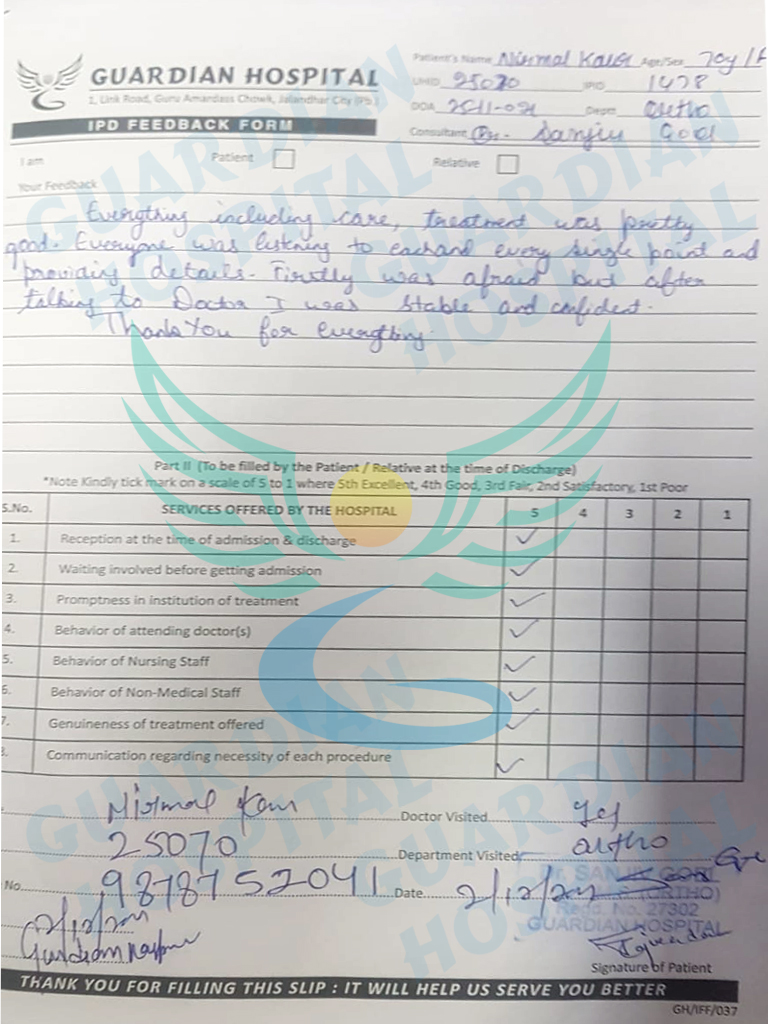 GUARDIAN HOSPITAL
1, Link Road, Guru Amardass Chowk, Jalandhar City (Pb.)
IPD FEEDBACK FORM
Patient's Name Nirmal Kaur Age/Sex 70y/F
UHID 25070 IPID 1478
DOA Deptt. Ortho
Consultant Dr. Sanjiv Goel
I am Patient Relative
Your Feedback
Everything including care, treatment was pretty
good. Everyone was listening to each and every single point and
providing details. Firstly was afraid but after
talking to Doctor I was stable and confident.
Thank You for everything.
Part II (To be filled by the Patient / Relative at the time of Discharge)
*Note Kindly tick mark on a scale of 5 to 1 where 5th Excellent, 4th Good, 3rd Fair, 2nd Satisfactory, 1st Poor
S.No. SERVICES OFFERED BY THE HOSPITAL 5 4 3 2 1
1. Reception at the time of admission & discharge ✓
2. Waiting involved before getting admission ✓
3. Promptness in institution of treatment ✓
4. Behavior of attending doctor(s) ✓
5. Behavior of Nursing Staff ✓
6. Behavior of Non-Medical Staff ✓
7. Genuineness of treatment offered ✓
8. Communication regarding necessity of each procedure ✓
Nirmal Kaur Doctor Visited Yes
25070 Department Visited Ortho
No. 9878752041 Date 2/12/
(ORTHO)
Regd. No. 27302
GUARDIAN HOSPITAL
2/12/
Signature of Patient
THANK YOU FOR FILLING THIS SLIP : IT WILL HELP US SERVE YOU BETTER
GH/IFF/037
GUARDIAN HOSPITAL